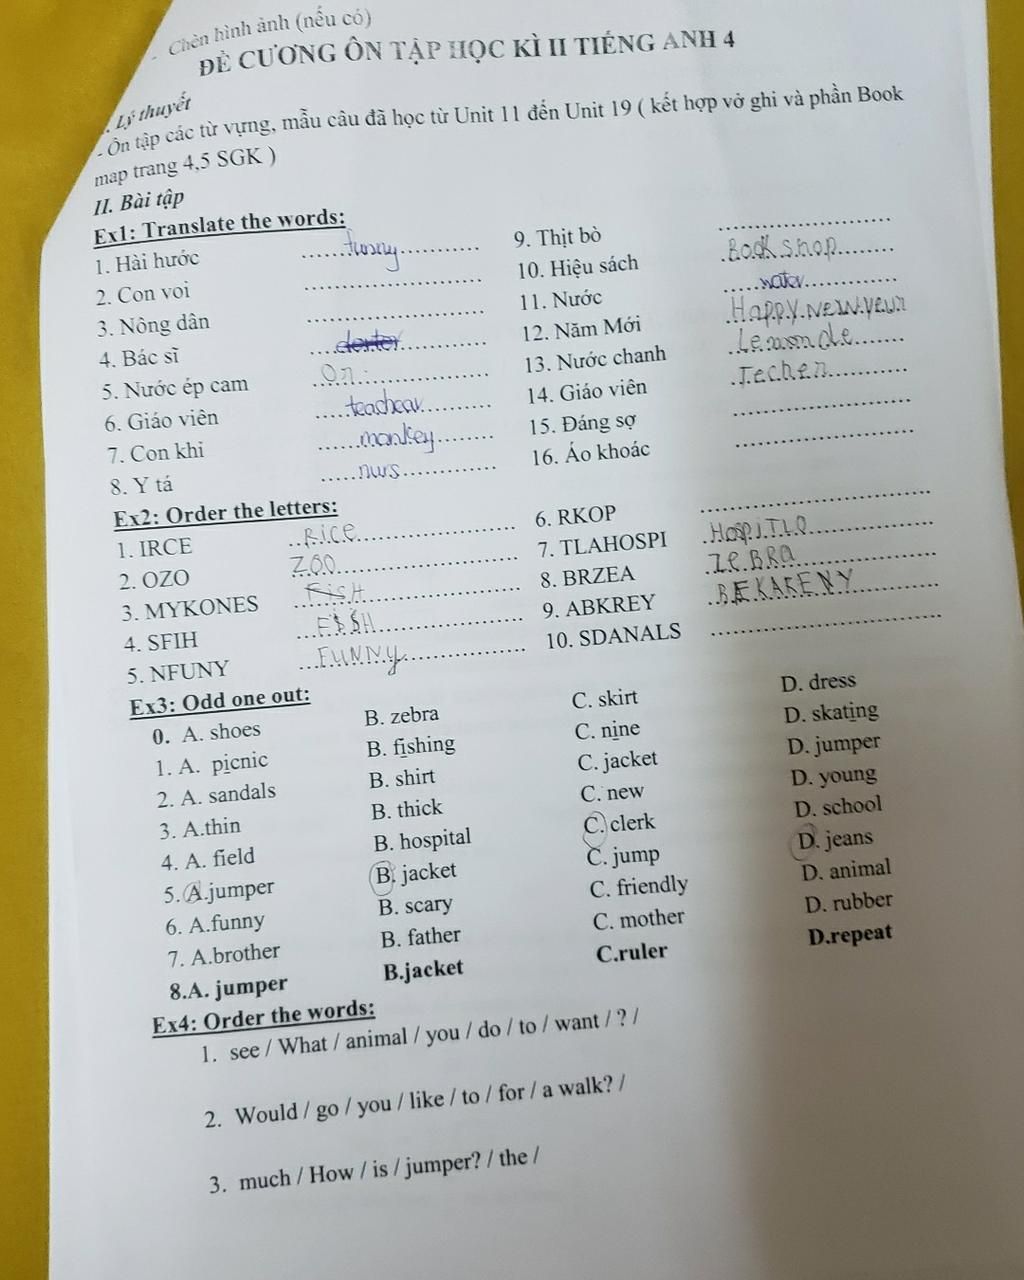 - Chèn hình ảnh (nếu có)
ĐỀ CƯƠNG ÔN TẬP HỌC KÌ II TIẾNG ANH 4
. Lý thuyết
- Ôn tập các từ vựng, mẫu câu đã học từ Unit 11 đến Unit 19 ( kết hợp vở ghi và phần Book
map trang 4,5 SGK )
II. Bài tập
Ex1: Translate the words:
1. Hài hước funny
2. Con voi
3. Nông dân
4. Bác sĩ
5. Nước ép cam On
6. Giáo viên teachear
7. Con khỉ monkey
8. Y tá nurs
9. Thịt bò
10. Hiệu sách Bookshop
11. Nước water
12. Năm Mới Happy New year
13. Nước chanh
14. Giáo viên Techen
15. Đáng sợ
16. Áo khoác
Ex2: Order the letters:
1. IRCE Rice
2. OZO ZOO
3. MYKONES FisH
4. SFIH
5. NFUNY FUNNy
6. RKOP
7. TLAHOSPI
8. BRZEA ZeBRa
9. ABKREY
10. SDANALS
Ex3: Odd one out:
0. A. shoes B. zebra C. skirt D. dress
1. A. picnic B. fishing C. nine D. skating
2. A. sandals B. shirt C. jacket D. jumper
3. A.thin B. thick C. new D. young
4. A. field B. hospital C. clerk D. school
5. A.jumper B. jacket C. jump D. jeans
6. A.funny B. scary C. friendly D. animal
7. A.brother B. father C. mother D. rubber
8.A. jumper B.jacket C.ruler D.repeat
Ex4: Order the words:
1. see / What / animal / you / do / to / want / ? /
2. Would / go / you / like / to / for / a walk? /
3. much / How / is / jumper? / the /